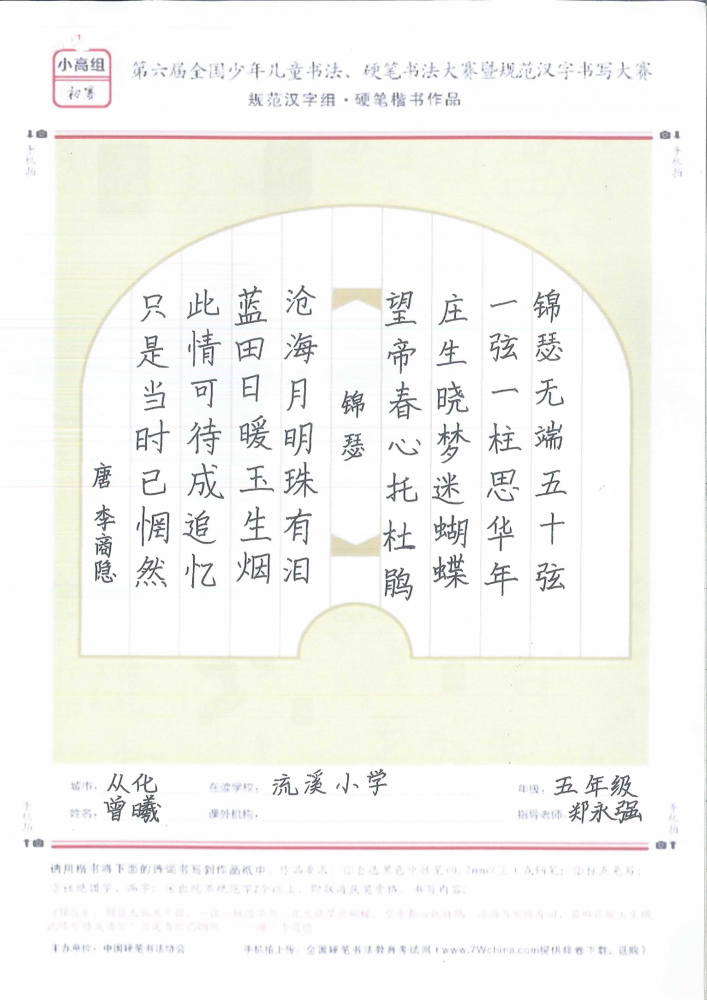 小高组
初赛
第六届全国少年儿童书法、硬笔书法大赛暨规范汉字书写大赛
规范汉字组·硬笔楷书作品
手机拍
手机拍
锦瑟无端五十弦
一弦一柱思华年
庄生晓梦迷蝴蝶
望帝春心托杜鹃
锦瑟
沧海月明珠有泪
蓝田日暖玉生烟
此情可待成追忆
只是当时已惘然
唐 李商隐
城市: 从化
在读学校: 流溪小学
年级: 五年级
姓名: 曾曦
课外机构:
指导老师: 郑永强
手机拍
手机拍
请用楷书将下面的诗词书写到作品纸中。作品要求:
书写内容:
主办单位:中国硬笔书法协会
手机拍上传:全国硬笔书法教育考试网(www.7Wchina.com提供样卷下载、选购)